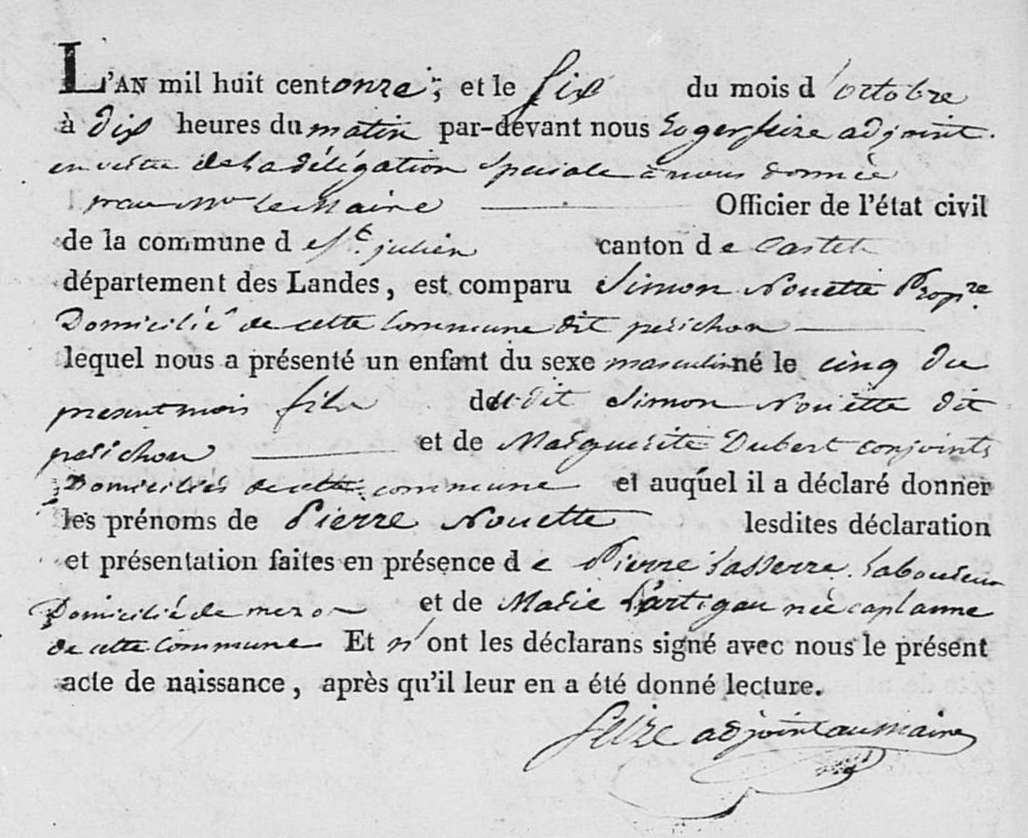 L'AN mil huit cent onze ; et le six du mois d'octobre
à dix heures du matin par-devant nous Roger seize adjoint
en vertu de la délégation speciale a nous donnée
par mr le Maire Officier de l'état civil
de la commune de St. julien canton de Castet
département des Landes, est comparu Simon Nouette Propre.
Domicilié de cette commune dit perichon
lequel nous a présenté un enfant du sexe masculin né le cinq du
present mois fils dudit Simon Nouette dit
perichon et de Marguerite Dubert conjoints
Domiciliés de cette commune et auquel il a déclaré donner
les prénoms de Pierre Nouette lesdites déclaration
et présentation faites en présence de Pierre Lasserre Laboureur
Domicilié de et de Marie Lartigau née caplanne
de cette commune Et n'ont les déclarans signé avec nous le présent
acte de naissance, après qu'il leur en a été donné lecture.
seize adjoint au maire